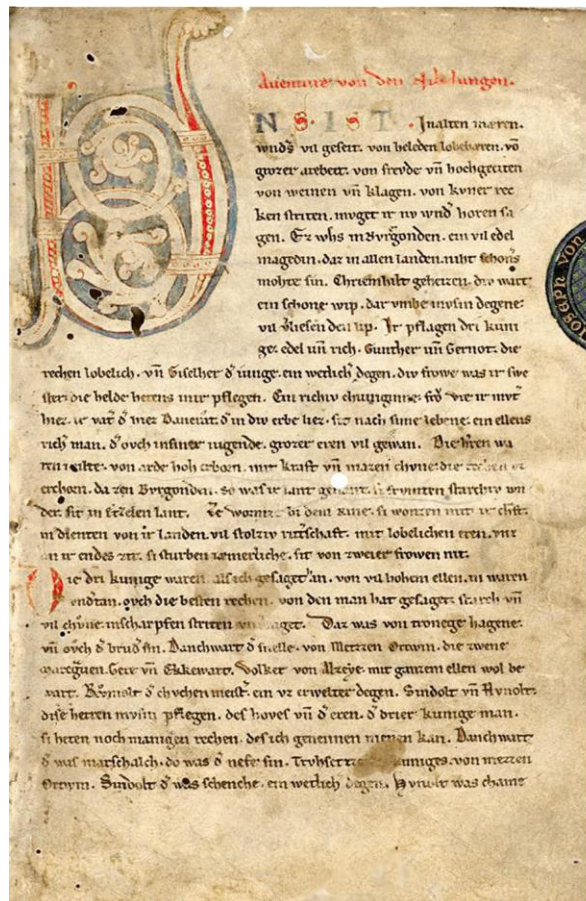 Auenture von den Nibelungen.
VNS IST. Jn alten mæren.
wnds vil geseit. von heleden lobebæren. võ
grozer arebeit. von frevde vñ hochgeciten
von weinen vñ klagen. von kvner rec
ken striten. mvget ir nv wnd horen sa
gen. Ez whs in Bvrgonden. ein vil edel
magedin. daz in allen landen. niht schons
mohte sin. Chriemhilt geheizen. div wart
ein schone wip. dar vmbe mvsin degene
vil vliesen den lip. Jr pflagen dri kuni
ge. edel vñ rich. Gunther vñ Gernot. die
rechen lobelich. vñ Giselher d iunge. ein wetlich degen. div frowe was ir swe
ster. die helde hetens inir pflegen. Ein richiv chuniginne. frǒ vte ir mvt
hiez. ir vat d hiez Dancrat. d in div erbe liez. sit nach sime lebene. ein ellens
rich man. d ovch in siner iugende. grozer eren vil gewan. Die hren wa
ren milte. von arde hoh erborn. mit kraft vñ mazen chvne. die rechen vz
erchorn. da zen Bvrgonden. so was ir lant genant. si frvmten starchiv wn
der. sit in Etzelen lant. Ze wormze bi dem Rine. si wonten mit ir chft.
in dienten von ir landen. vil stolziv ritschaft. mit lobelichen eren. vnz
an ir endes zit. si sturben iæmerliche. sit von zweier frowen nit.
Die dri kunige waren. als ich gesaget han. von vil hohem ellen. in waren
vndtan. ovch die besten rechen. von den man hat gesaget. starch vñ
vil chvne. in scharpfen striten vnverzaget. Daz was von tronege hagene.
vñ ovch d brud sin. Danchwart d snelle. von Metzzen Ortwin. die zwene
maregrauen. Gere vñ Ekkewart. Volker von Alzeye. mit ganzem ellen wol be
wart. Rvmolt d chvchen meist. ein vz erwelter degen. Sindolt vñ Hvnolt.
dise herren mvsin pflegen. des hoves vñ d eren. d drier kunige man.
si heten noch manigen rechen. des ich genennen nienen kan. Danchwart
d was marschalch. do was d nefe sin. Trvhsetze des kuniges. von mezzen
Ortwin. Sindolt d was schenche. ein wetlich degen. Hvnolt was chame
JOSEPH VON